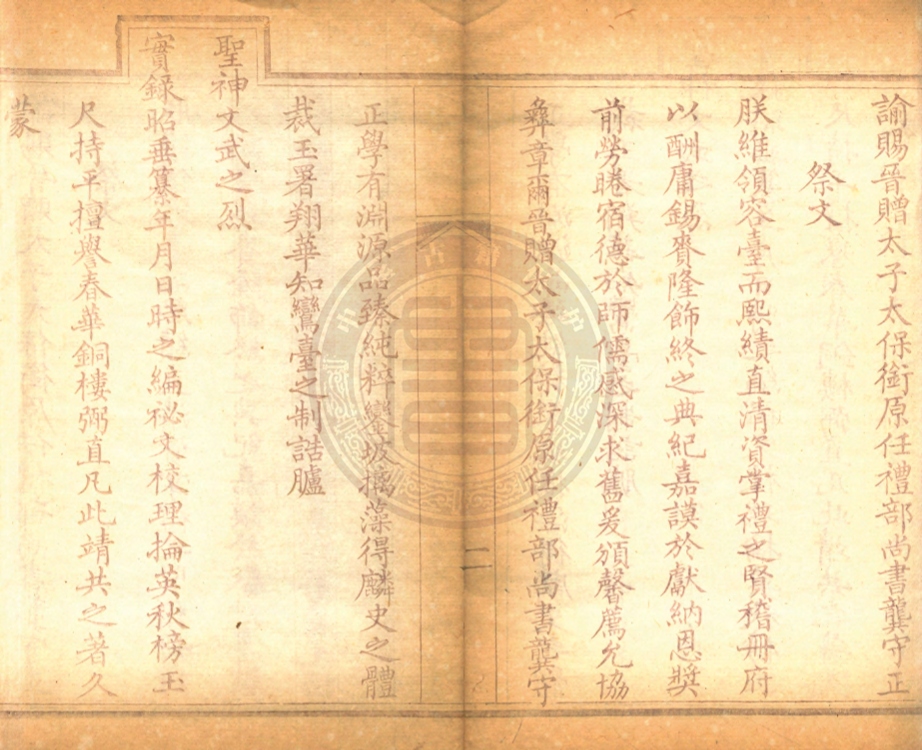 諭賜晉贈太子太保銜原任禮部尚書龔守正
祭文
朕維領容臺而熙績直清資掌禮之賢稽冊府
以酬庸錫賚隆飾終之典紀嘉謨於獻納恩獎
前勞睠宿德於師儒感深求舊爰頒馨薦允協
彝章爾晉贈太子太保銜原任禮部尚書龔守
二
正學有淵源品臻純粹鑾坡摛藻得麟史之體
裁玉署翔華知鸞臺之制誥臚
聖神文武之烈
實錄昭垂纂年月日時之編祕文校理掄英秋榜玉
尺持平擅譽春華銅樓弼直凡此靖共之著久
蒙